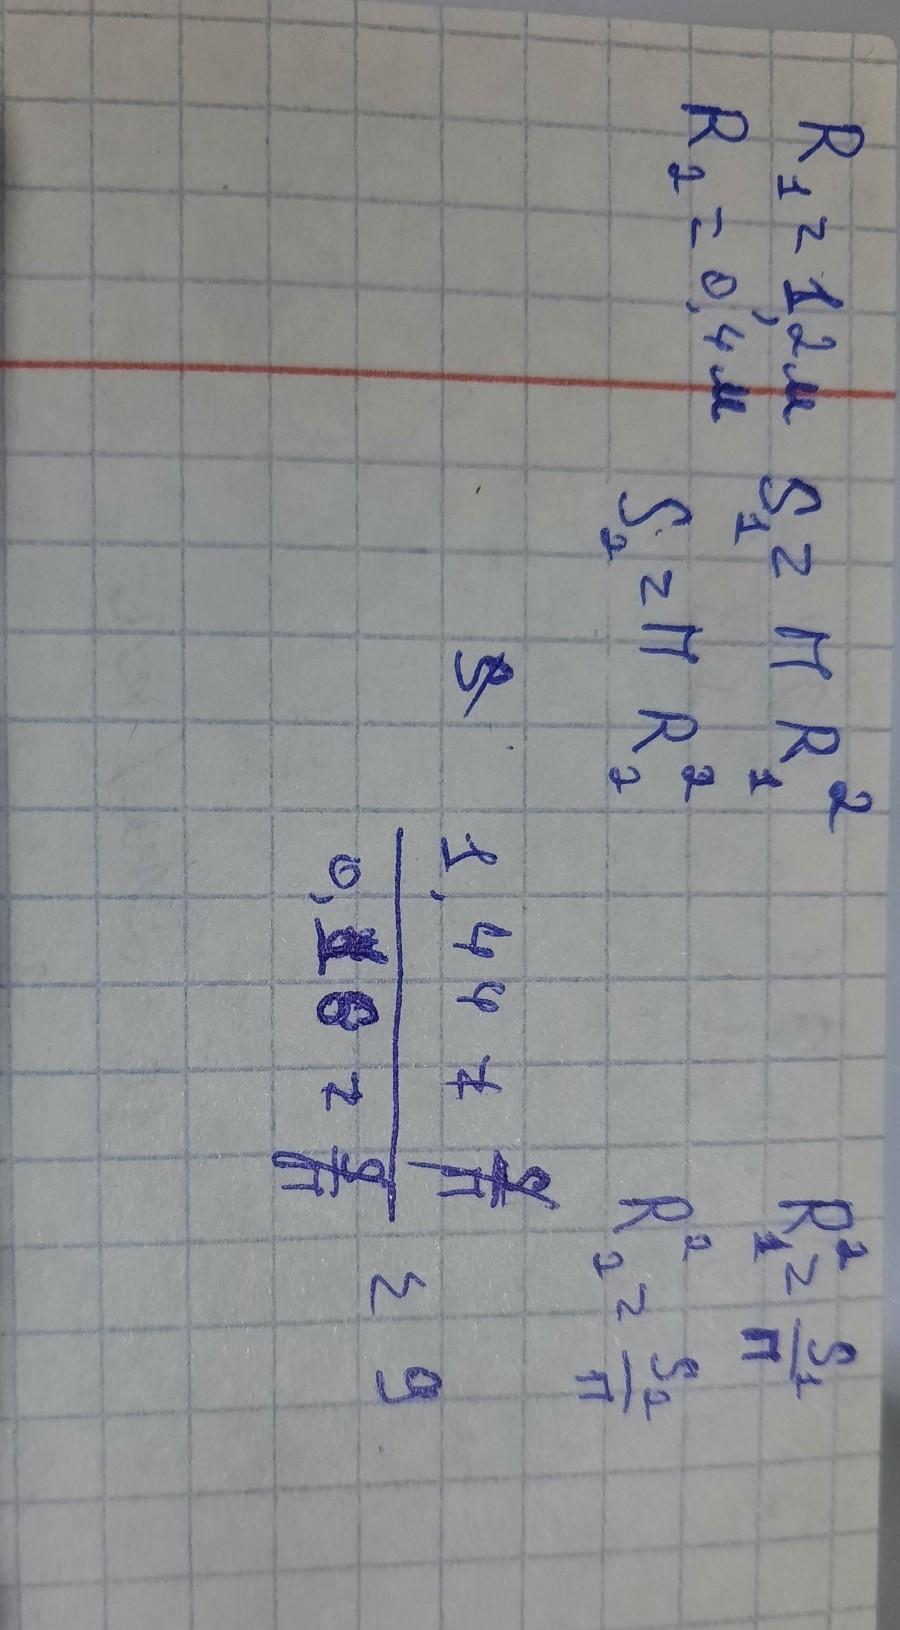 R₁ = 1,2м S₁ = π R₁² R₁² = S₁/π
R₂ = 0,4м S₂ = π R₂² R₂² = S₂/π
1,44 = S/π
0,16 = S/π
= 9